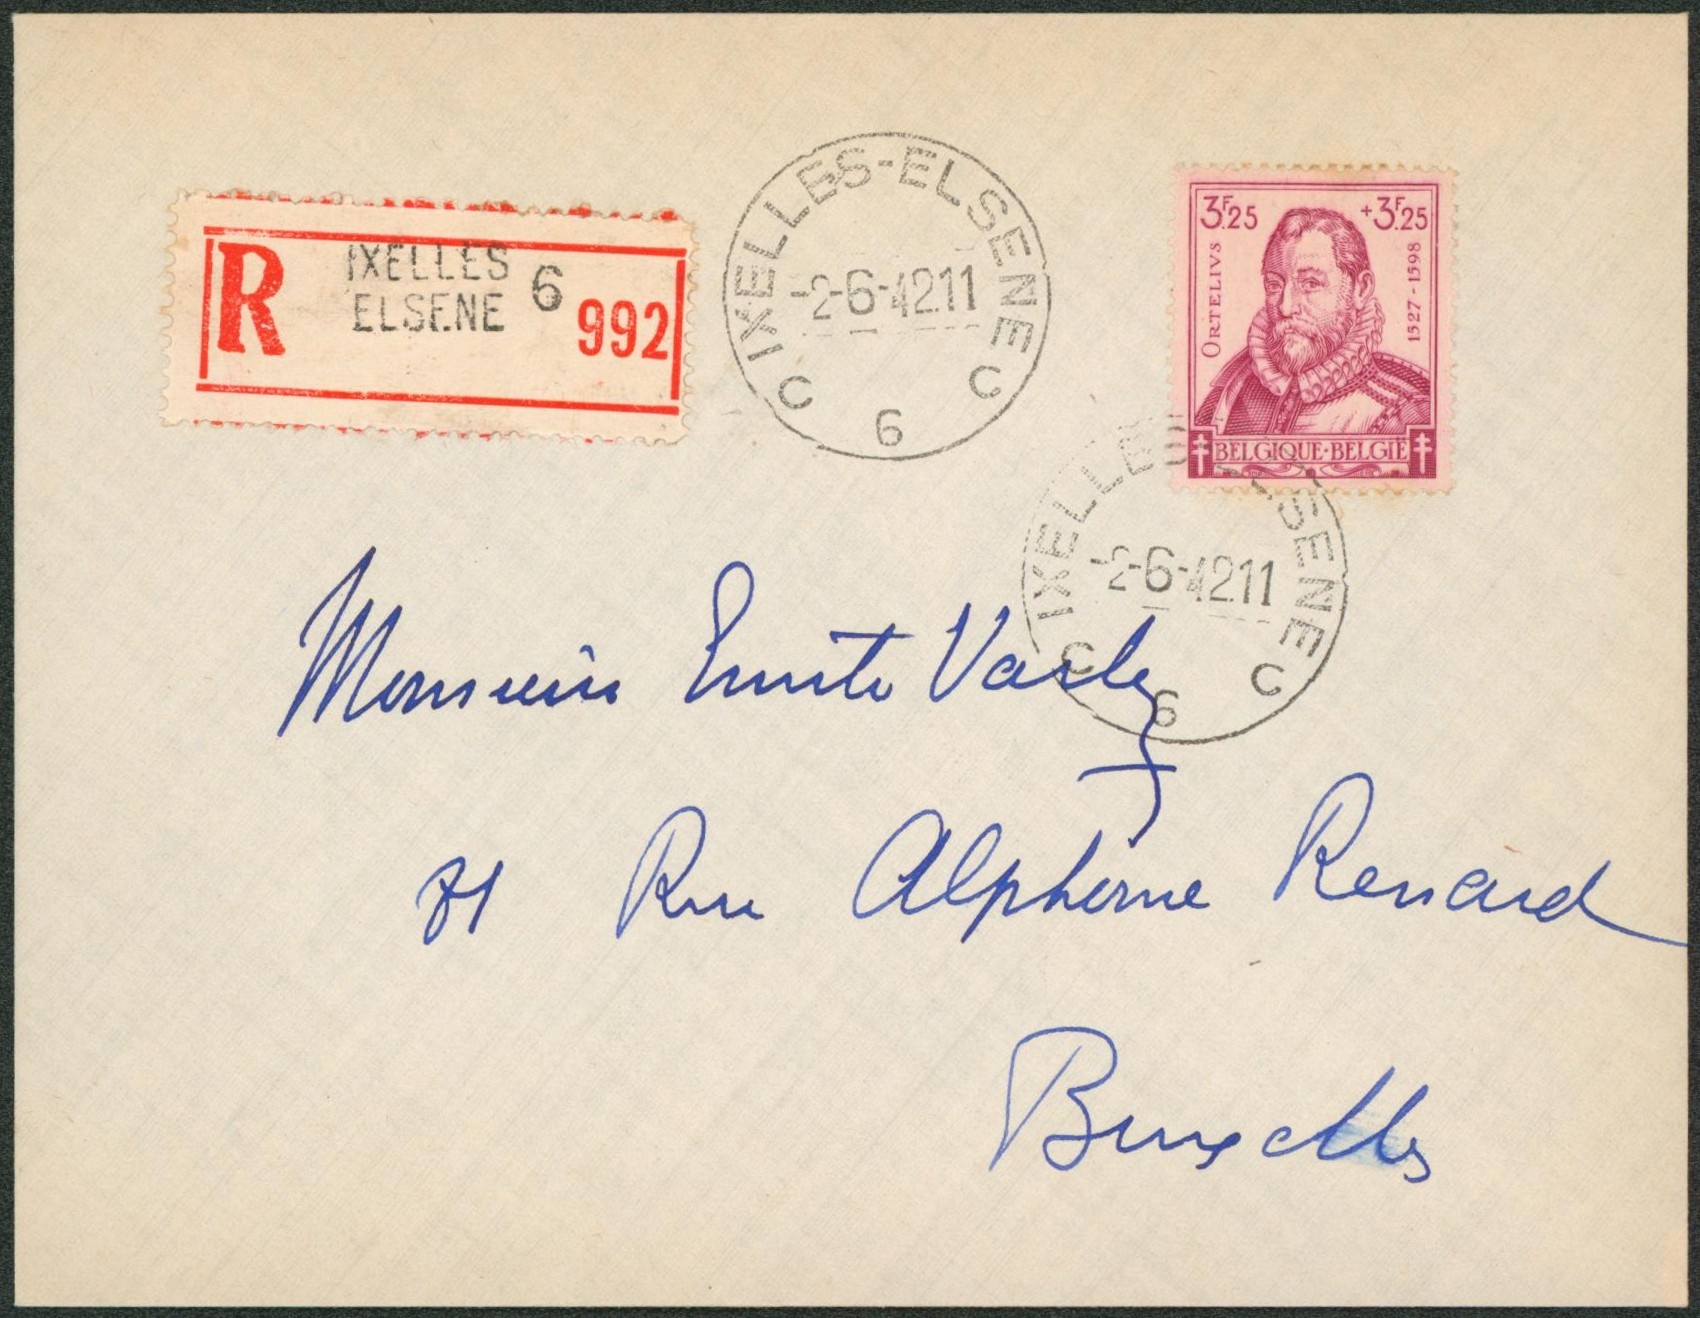 R
IXELLES
ELSENE 6
992
IXELLES-ELSENE
-2-6-42.11
C 6 C
3F25 +3F25
ORTELIVS
1527-1598
BELGIQUE·BELGIË
IXELLES-ELSENE
-2-6-42.11
C 6 C
Monsieur
Rue Alphonse Renard
Bruxelles